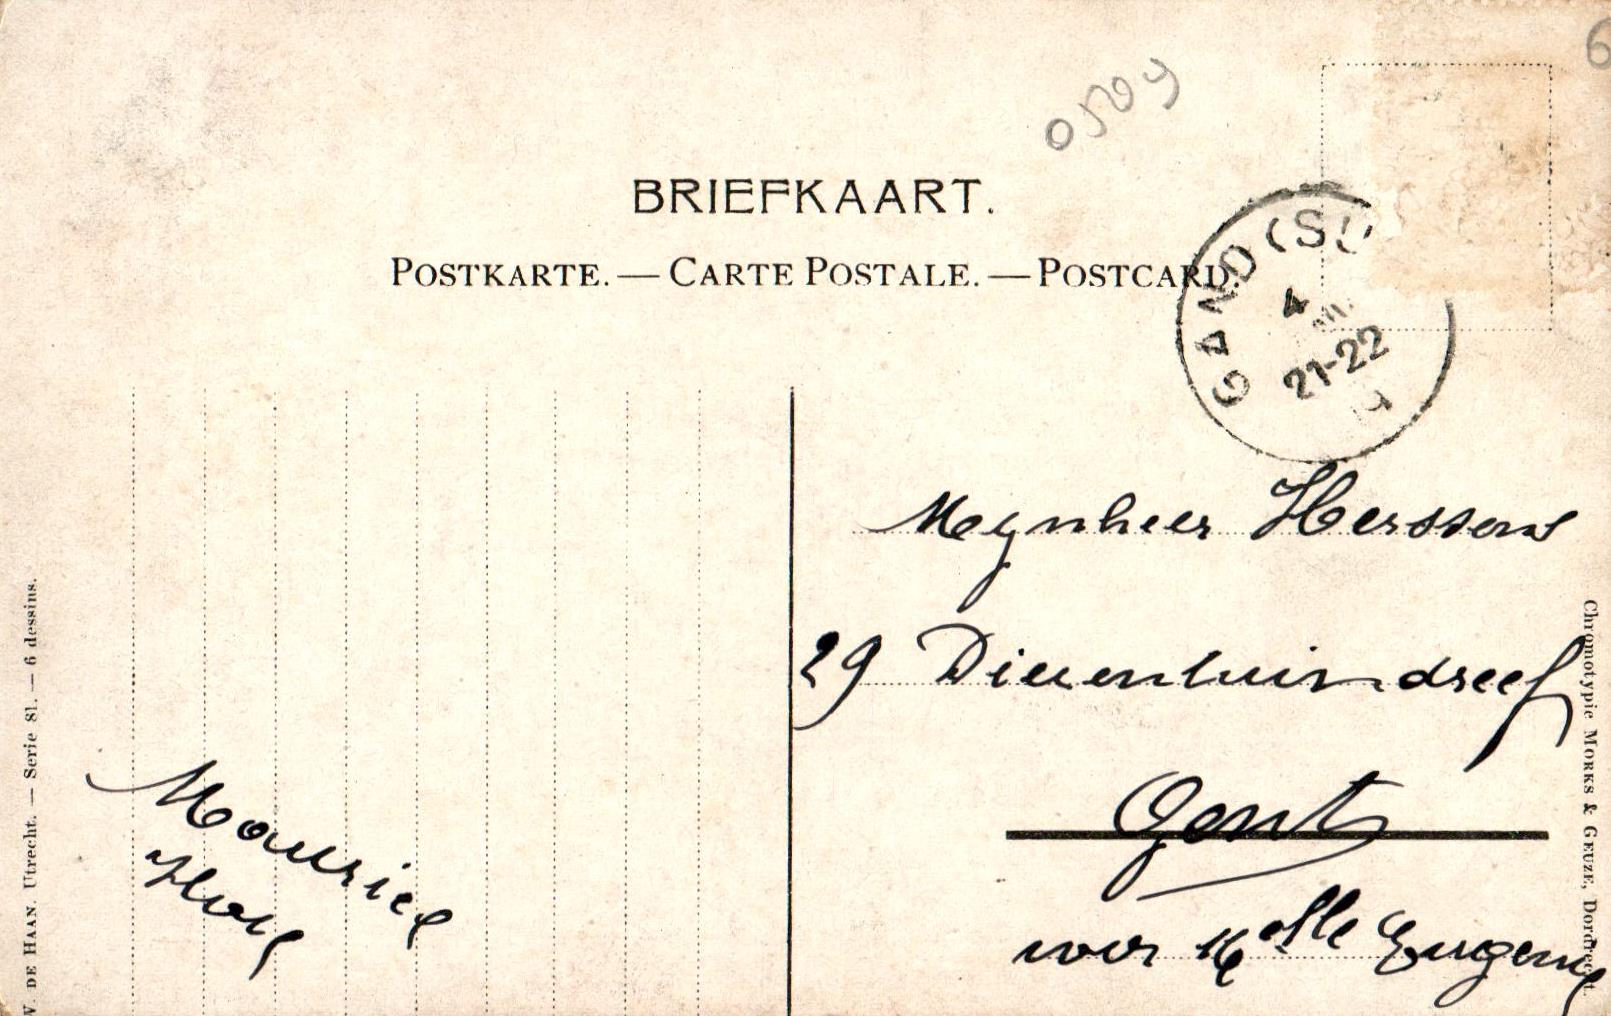 6
0509
BRIEFKAART.
POSTKARTE. — CARTE POSTALE. — POSTCARD.
GAND (SU
4
21-22
Mynheer Herssens
29 Dierentuindreef
Gent
voor Melle Eugenie
Maurice
DE HAAN Utrecht. — Serie 81. — 6 dessins.
Chromotypie MORKS & GEUZE, Dordrecht.